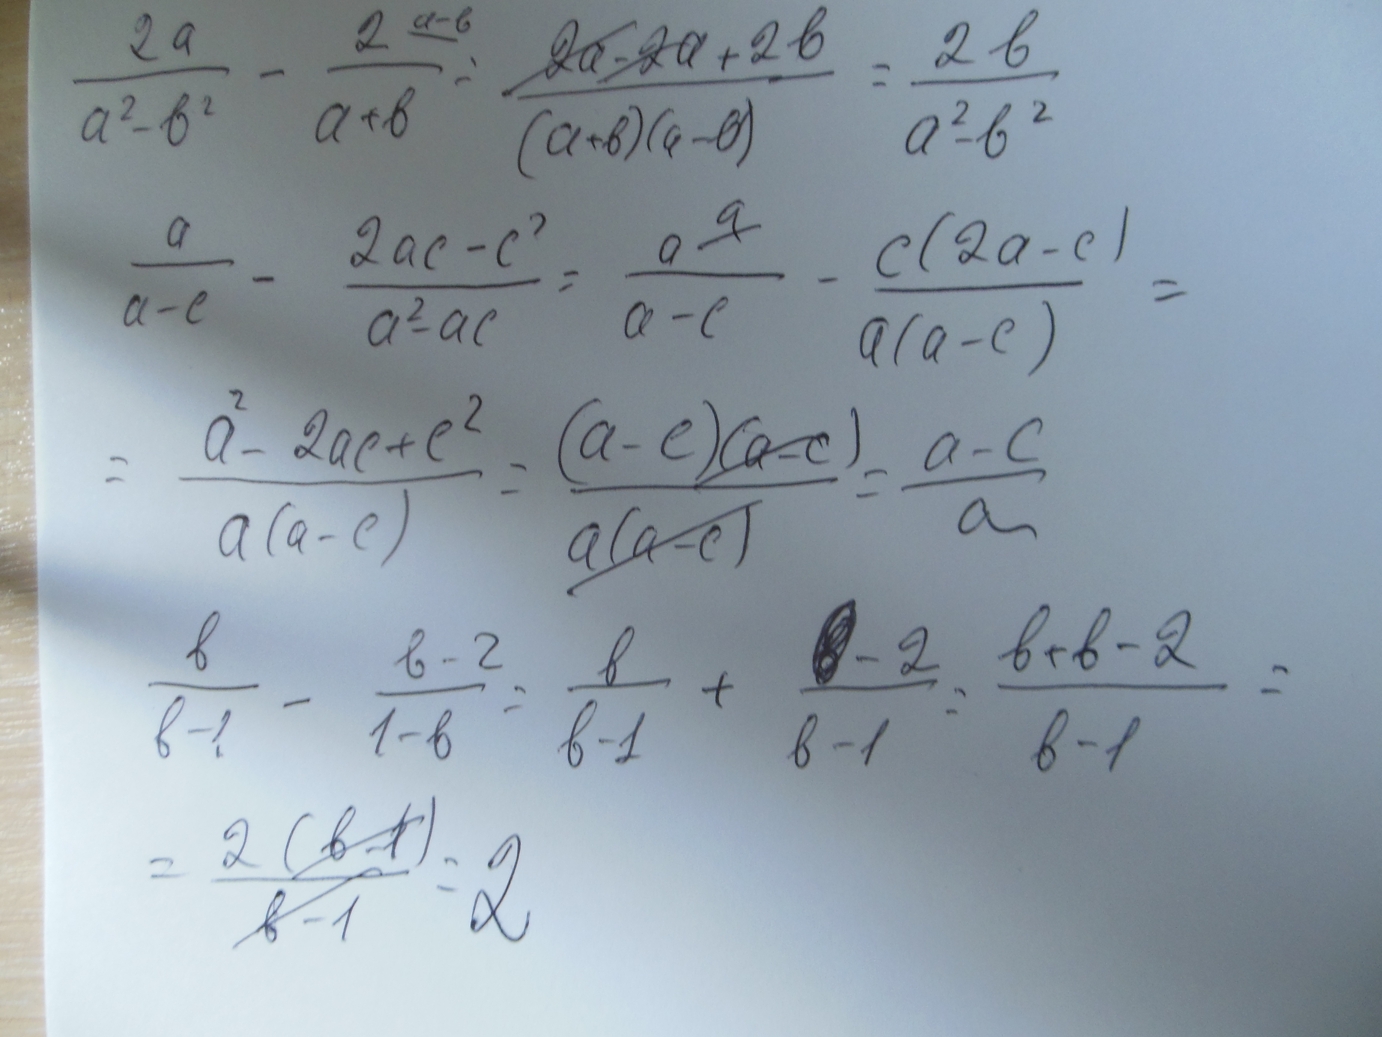 2a/(a²-b²) - 2 (a-b)/(a+b) = (2a-2a+2b)/((a+b)(a-b)) = 2b/(a²-b²)
a/(a-c) - (2ac-c²)/(a²-ac) = a a/(a-c) - c(2a-c)/(a(a-c)) =
= (a²-2ac+c²)/(a(a-c)) = (a-c)(a-c)/(a(a-c)) = (a-c)/a
b/(b-1) - (b-2)/(1-b) = b/(b-1) + (b-2)/(b-1) = (b+b-2)/(b-1) =
= 2(b-1)/(b-1) = 2